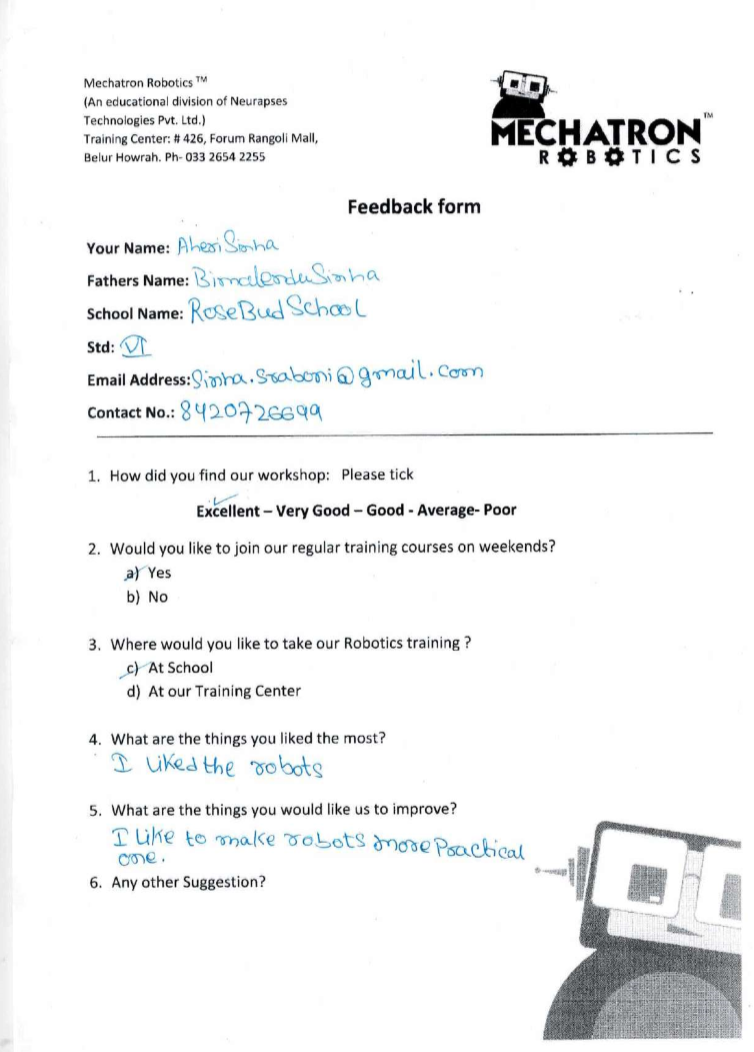 Mechatron Robotics TM
(An educational division of Neurapses
Technologies Pvt. Ltd.)
Training Center: # 426, Forum Rangoli Mall,
Belur Howrah. Ph- 033 2654 2255
MECHATRON TM
ROBOTICS
Feedback form
Your Name: Aheri Sinha
Fathers Name: Bimalendu Sinha
School Name: RoseBud School
Std: VI
Email Address: Sinha.Sraboni@gmail.com
Contact No.: 8420726699
1. How did you find our workshop: Please tick
Excellent – Very Good – Good - Average- Poor
2. Would you like to join our regular training courses on weekends?
a) Yes
b) No
3. Where would you like to take our Robotics training ?
c) At School
d) At our Training Center
4. What are the things you liked the most?
I liked the robots
5. What are the things you would like us to improve?
I like to make robots more Practical
one.
6. Any other Suggestion?